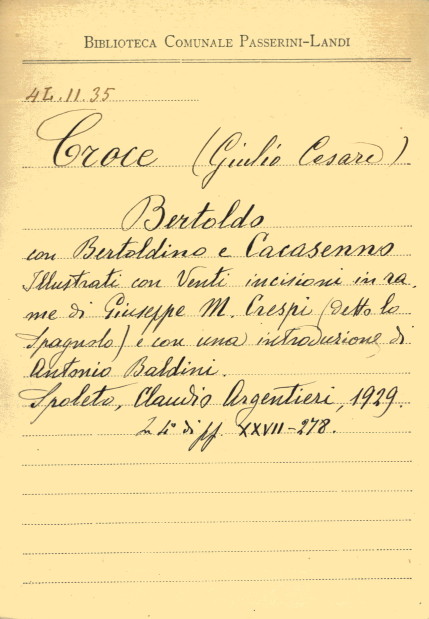 BIBLIOTECA COMUNALE PASSERINI-LANDI
4L.11.35
Croce (Giulio Cesare)
Bertoldo
con Bertoldino e Cacasenno
Illustrati con Venti incisioni in ra.
me di Giuseppe M. Crespi (detto lo
Spagnolo) e con una introduzione di
Antonio Baldini.
Spoleto, Claudio Argentieri, 1929.
In 4° di pp. XXVII-278.